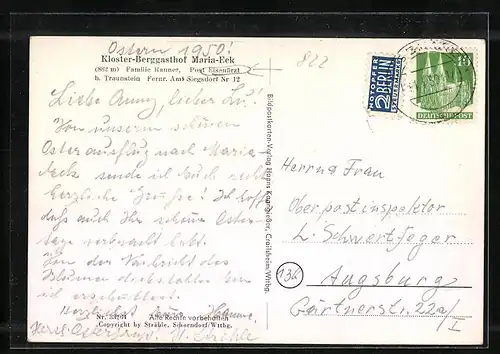 Ostern 1950!
822
Kloster-Berggasthof Maria-Eck
(882 m) Familie Rauner, Post Eisenärzt
b. Traunstein Fernr. Amt Siegsdorf Nr 12
Liebe Anny, lieber Lu!
Von unserem schönen
Osterausflug nach Maria-
Eck sende ich Euch recht
herzliche Grüße! Ich hoffe,
daß auch Ihr schöne Oster-
tage verbracht habt.
Von der Nachricht des
bin
ich erschüttert.
Herzlichst Eure
Herzl. Ostergrüße
Nr. Alle Rechte vorbehalten
Copyright by Strähle, Schorndorf/Wttbg.
Bildpostkarten-Verlag Hans Crailsheim/Wttbg.
NOTOPFER
2 BERLIN
STEUERMARKE
10
DEUTSCHE POST
Herrn u. Frau
Oberpostinspektor
L. Schwertfeger
13b
Augsburg
Gärtnerstr. 22a/I